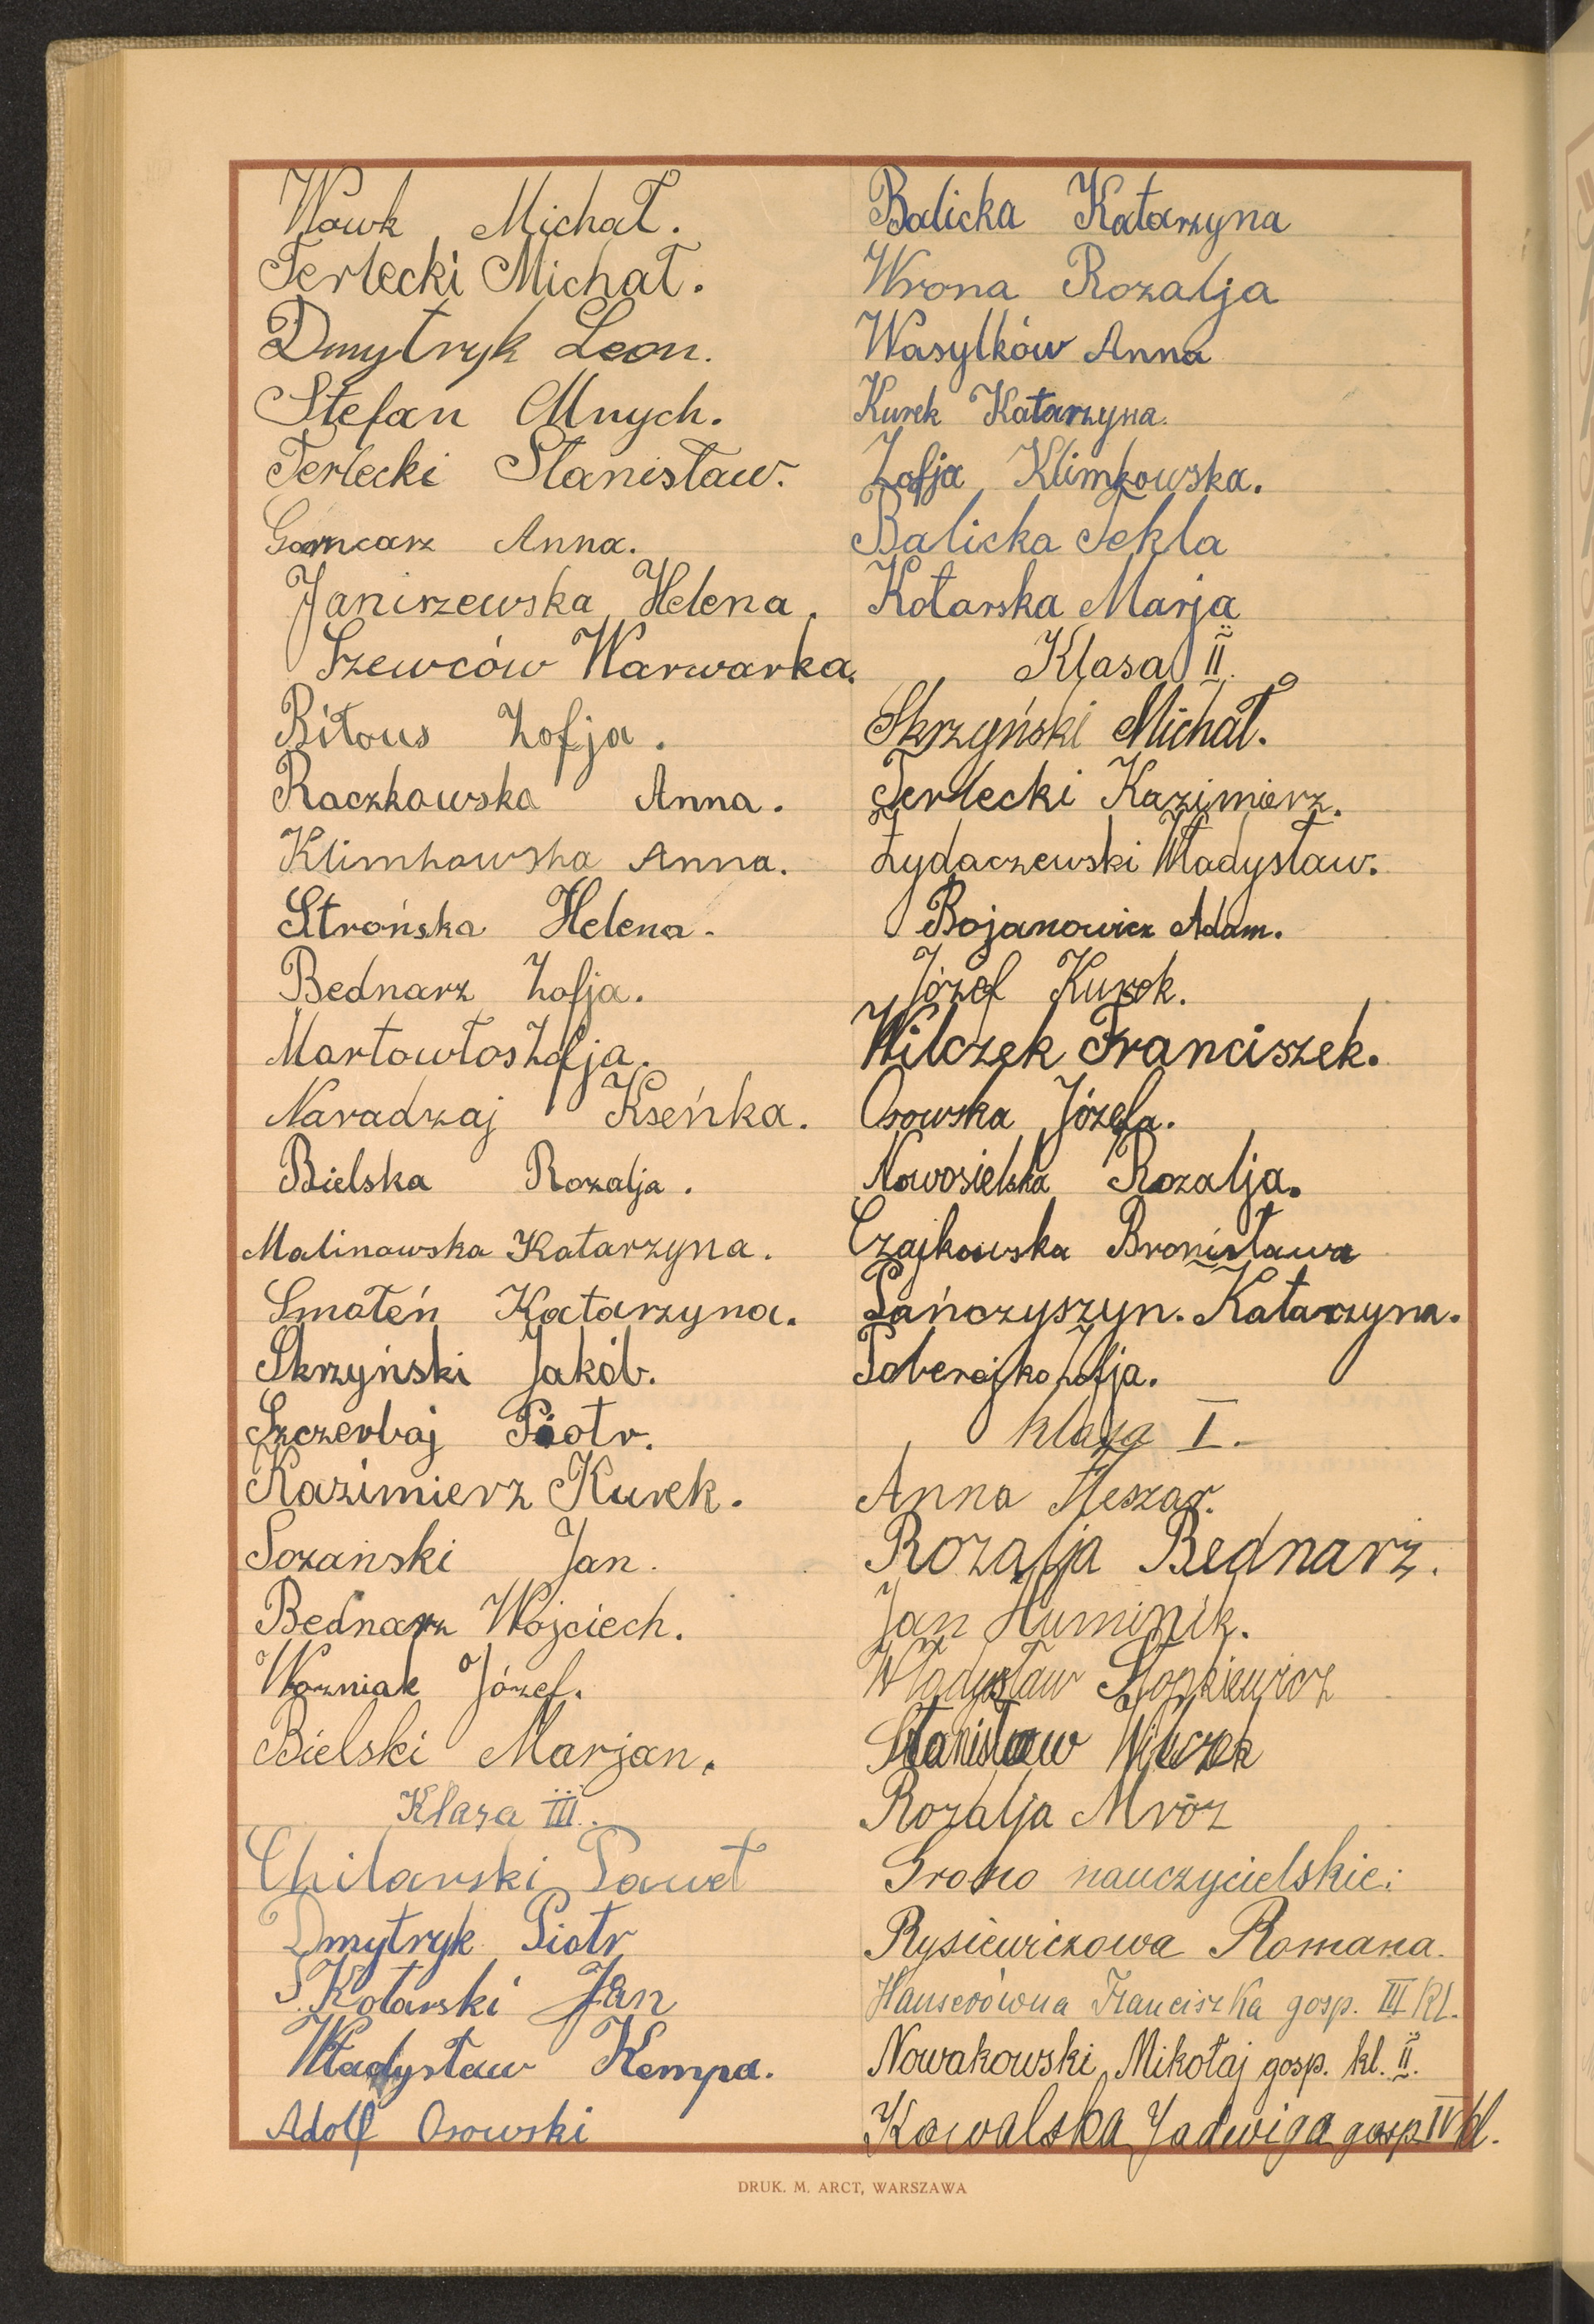 Wowk Michał.
Terlecki Michał.
Dmytryk Leon.
Stefan Mnych.
Terlecki Stanisław.
Garncarz Anna.
Janiszewska Helena.
Szewców Warwarka.
Biłous Zofja.
Raczkowska Anna.
Klimkowska Anna.
Strońska Helena.
Bednarz Zofja.
Martowłos Zofja.
Naradzaj Kseńka.
Bielska Rozalja.
Malinowska Katarzyna.
Smoleń Katarzyna.
Skrzyński Jakób.
Szczerbaj Piotr.
Kazimierz Kurek.
Sozański Jan.
Bednarz Wojciech.
Woźniak Józef.
Bielski Marjan.
Klasa III.
Chilarski Paweł
Dmytryk Piotr
Kotarski Jan
Władysław Kempa.
Adolf Osowski
Balicka Katarzyna
Wrona Rozalja
Wasylków Anna
Kurek Katarzyna.
Zofja Klimkowska.
Balicka Tekla
Kotarska Marja
Klasa II.
Skrzyński Michał.
Terlecki Kazimierz.
Żydaczewski Władysław.
Bojanowicz Adam.
Józef Kurek.
Wilczek Franciszek.
Osowska Józefa.
Nowosielska Rozalja.
Czajkowska Bronisława
Pańczyszyn. Katarzyna.
Poberejko Zofja.
klasa I.
Anna Heszar.
Rozalja Bednarz.
Jan Huminik.
Władysław Stopkiewicz
Stanisław Wilczek
Rozalja Mróz
Grono nauczycielskie:
Rysiewiczowa Romana.
Hauserówna Franciszka gosp. III kl.
Nowakowski Mikołaj gosp. kl. II.
Kowalska Jadwiga gosp. IV kl.
DRUK. M. ARCT, WARSZAWA